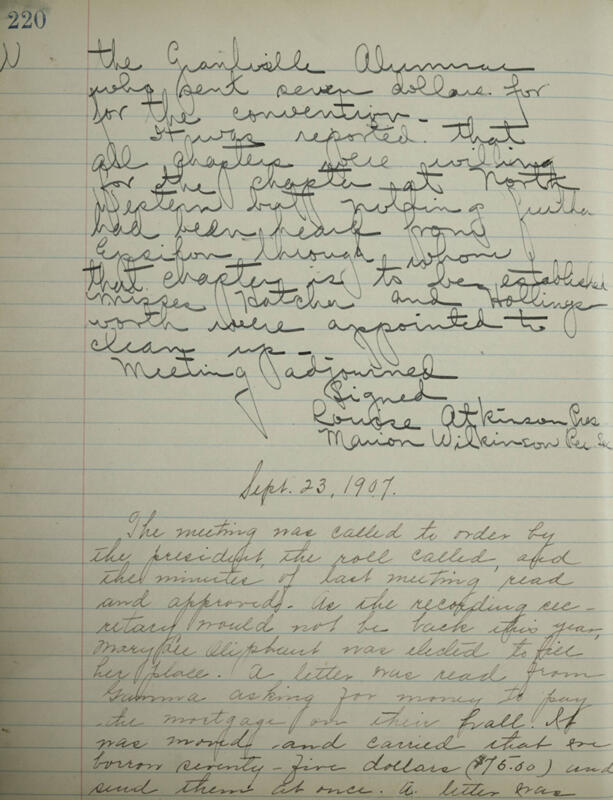 220
the Granville Alumnae
who sent seven dollars for
for the convention.
It was reported that
all chapters were willing
for the chapter at North
Western but nothing further
had been heard from
Epsilon through whom
that chapter is to be established
Misses Hatcher and Hollings
worth were appointed to
clean up.
Meeting adjourned
Signed
Louise Atkinson Pres
Marion Wilkinson Rec Sec
Sept. 23, 1907.
The meeting was called to order by
the president, the roll called, and
the minutes of last meeting read
and approved. As the recording sec-
retary would not be back this year,
Mary Lee Oliphant was elected to fill
her place. A letter was read from
Gamma asking for money to pay
the mortgage on their hall. It
was moved and carried that we
borrow seventy-five dollars ($75.00) and
send them at once. A letter was